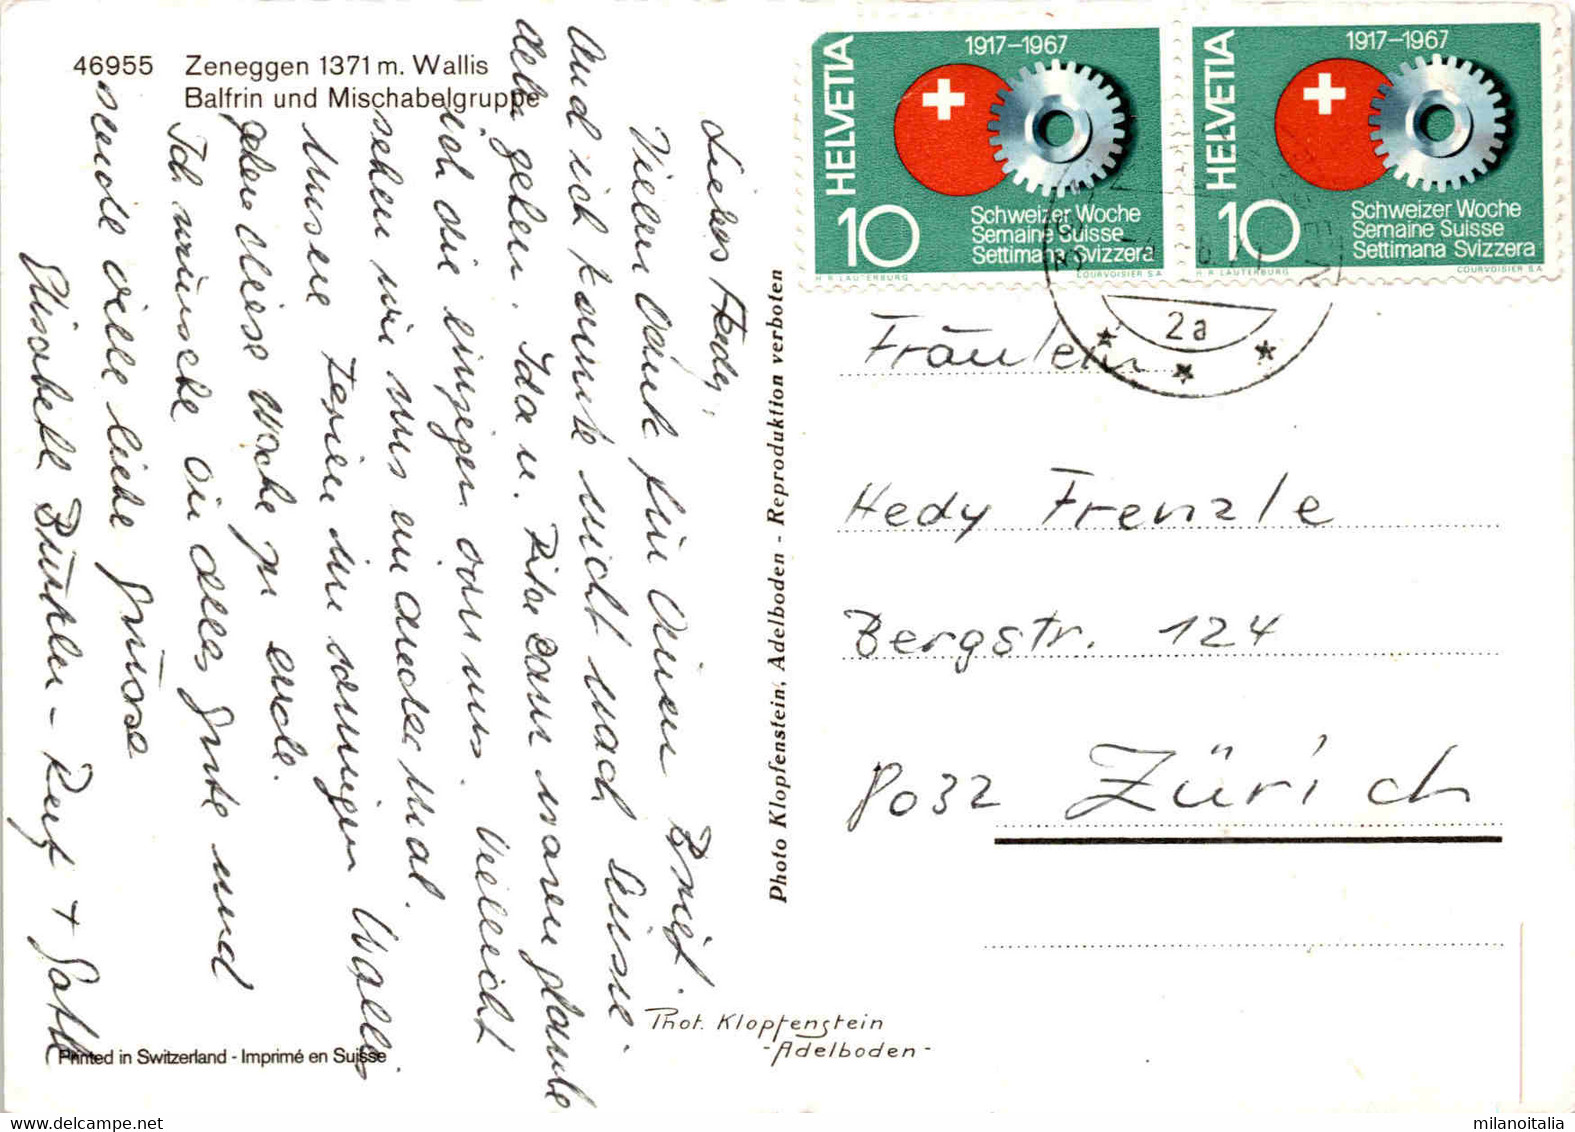 46955 Zeneggen 1371 m. Wallis
Balfrin und Mischabelgruppe
Liebes Hedy,
Vielen Dank für Deinen Brief.
Und ich konnte nicht nach Suisse
dele gehen. Ida u. Rita waren glaube
ich die einzigen von uns. Vielleicht
sehen wir uns ein anderMal.
Unsere Ferien im sonnigen Wallis
gehen diese Woche zu ende.
Ich wünsche Dir alles Gute und
sende viele liebe Grüsse
Elisabeth - Ruf + Gotti
Photo Klopfenstein, Adelboden - Reproduktion verboten
Printed in Switzerland - Imprimé en Suisse
Phot. Klopfenstein
-Adelboden-
HELVETIA
1917-1967
10
Schweizer Woche
Semaine Suisse
Settimana Svizzera
H.R. LAUTERBURG
COURVOISIER S.A.
HELVETIA
1917-1967
10
Schweizer Woche
Semaine Suisse
Settimana Svizzera
H.R. LAUTERBURG
COURVOISIER S.A.
2a
Fräulein
Hedy Frenzle
Bergstr. 124
8032 Zürich
mycollect0r
milanoitalia